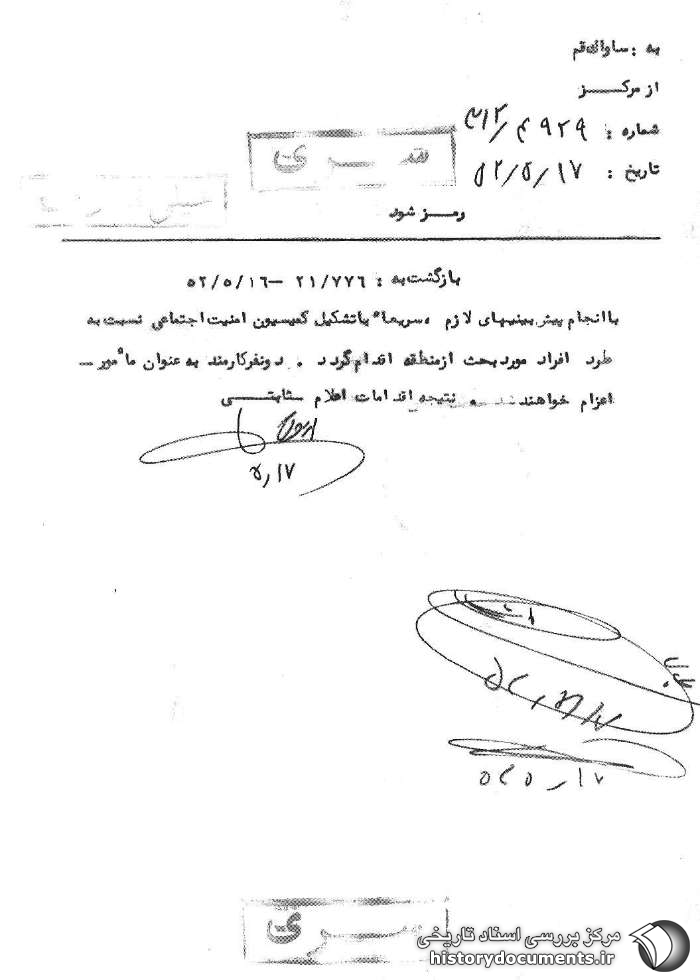 به : ساواک قم
از مرکــــز
شماره : ۳۱۲/۴۹۲۹
تاریخ : ۵۲/۵/۱۷
ســری
رمــز شود
بازگشت به : ۲۱/۷۷۶ – ۵۲/۵/۱۶
با انجام پیش بینیهای لازم ، سریعاً با تشکیل کمیسیون امنیت اجتماعی نسبت به
طرد افراد مورد بحث از منطقه اقدام گردد . دونفر کارمند به عنوان مأمور –
اعزام خواهند شد . نتیجه اقدامات اعلام ثابتــی
۵/۱۷
۵۲/۵/۱۷
۵۲ ۵/۱۷
ســری
مرکز بررسی اسناد تاریخی
historydocuments.ir